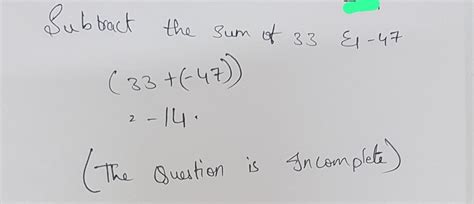 Subtract the sum of 33 & -47
(33+(-47))
= -14.
(The Question is Incomplete)